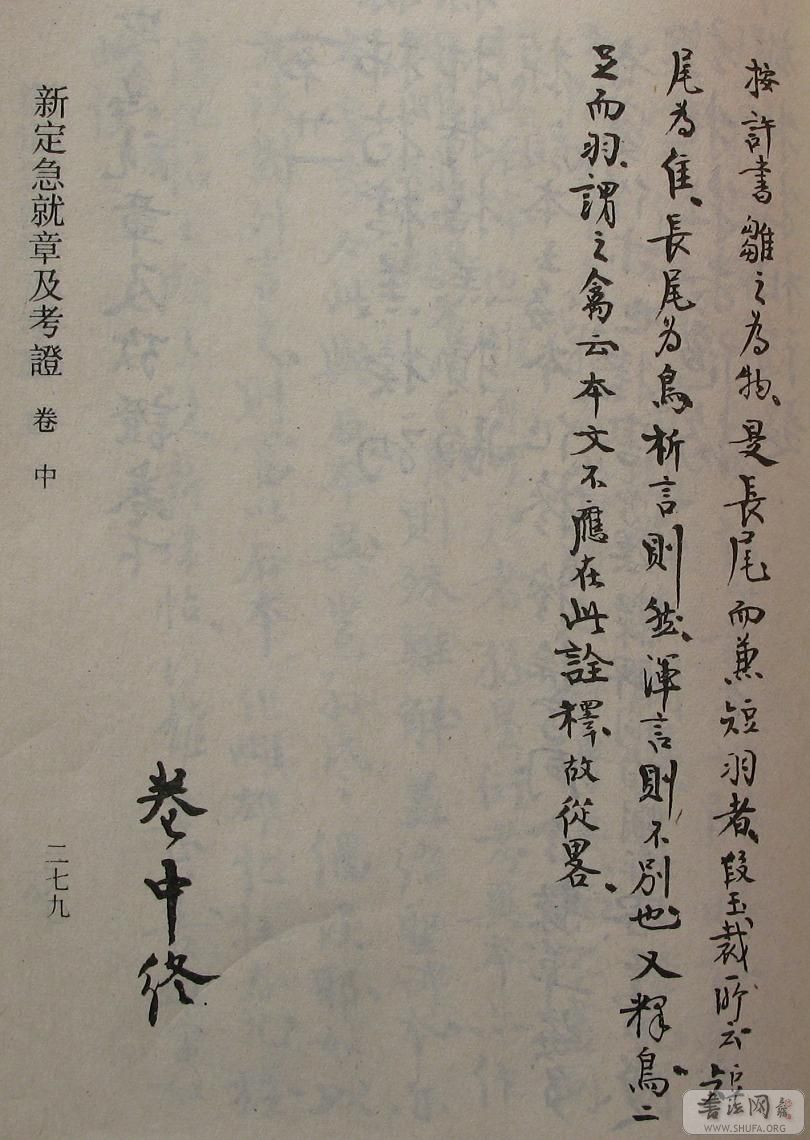 按許書雛之為物、是長尾而兼短羽者、段玉裁所云短
尾為隹、長尾為鳥、析言則然、渾言則不別也、又釋鳥、二
足而羽、謂之禽云、本文不應在此詮釋、故從畧、
卷中終
新定急就章及考證 卷中
二七九
書法网
WWW.SHUFA.ORG